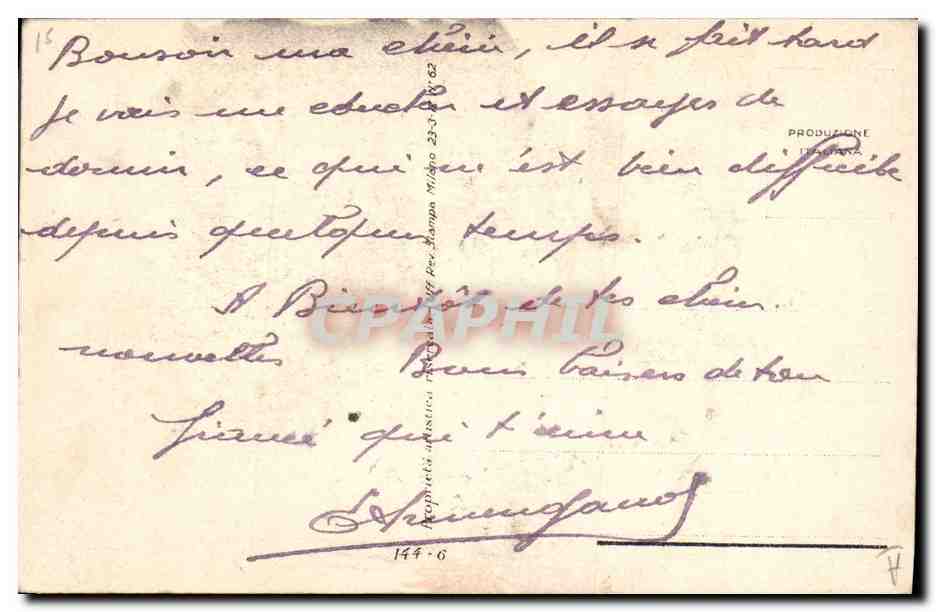 15
Bonsoir ma chérie, il se fait tard
je vais me coucher et essayer de
dormir, ce qui m'est bien difficile
depuis quelques temps.
A Bientôt de tes chères
nouvelles Bons baisers de ton
fiancé qui t'aime
PRODUZIONE
ITALIANA
Proprietà artistica riservata Rev. Stampa Milano 23-3- N° 62
CPAPHIL
144-6